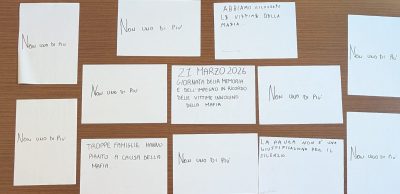 Non uno di più
Non uno di più
ABBIAMO RICORDATO
LE VITTIME DELLA
MAFIA
Non uno di più
Non uno di più
21 MARZO 2026
GIORNATA DELLA MEMORIA
E DELL'IMPEGNO IN RICORDO
DELLE VITTIME INNOCENTI
DELLA MAFIA
Non uno di più
Non uno di più
Non uno di più
TROPPE FAMIGLIE HANNO
PIANTO A CAUSA DELLA
MAFIA
Non uno di più
LA PAURA NON È UNA
GIUSTIFICAZIONE PER IL
SILENZIO